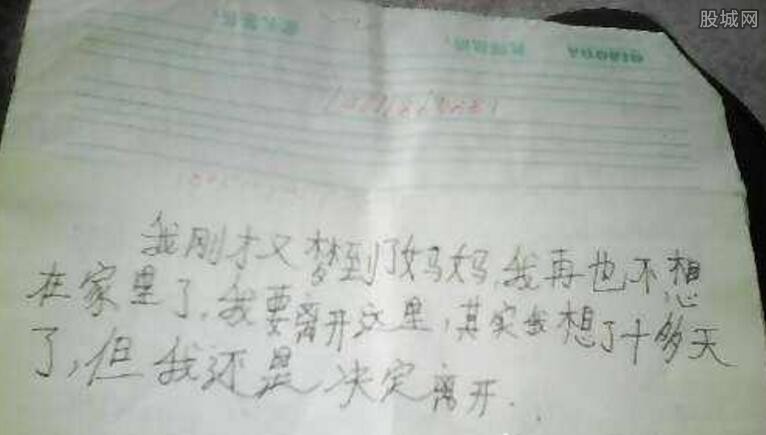 股城网
我刚才又梦到了妈妈,我再也不想
在家里了,我要离开这里,其实我想了十多天
了,但我还是决定离开.